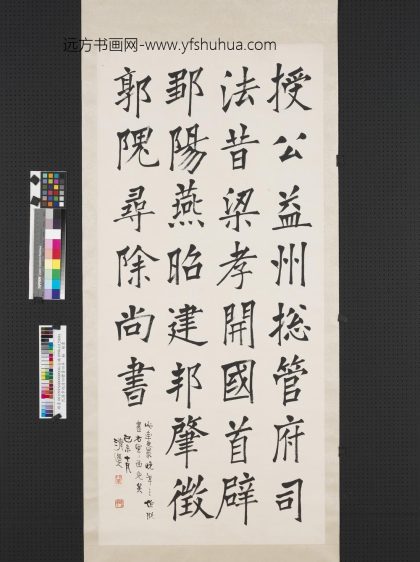 远方书画网-www.yfshuhua.com
授公益州捴管府司
法昔梁孝開國首辟
鄒陽燕昭建邦肇徵
郭隗尋除尚書